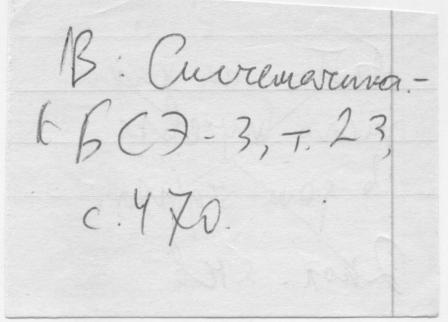 В: Систематика.-
БСЭ-3, т. 23,
с. 470.